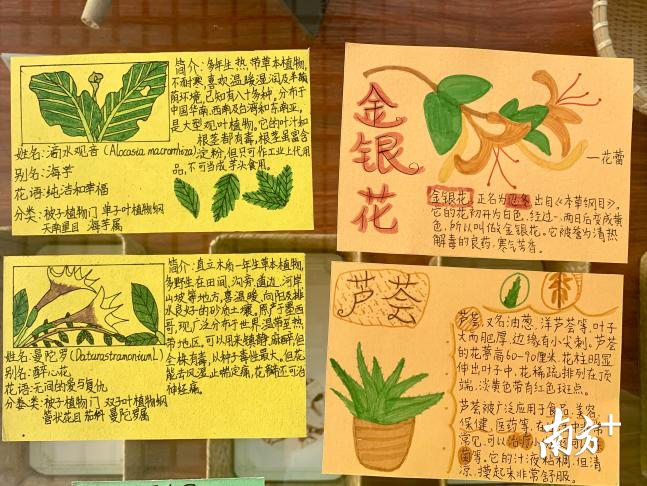 简介:多年生热带草本植物,
不耐寒,喜欢温暖湿润及半荫
荫环境,已知有八十多种,分布于
中国华南、西南及台湾和东南亚,
是大型观叶植物。它的叶汁和
根茎都有毒,根茎虽富含
淀粉,但只可作工业上代用
品,不可当成芋头食用。
姓名:滴水观音(Alocasia macrorrhiza)
别名:海芋
花语:纯洁和幸福
分类:被子植物门 单子叶植物纲
天南星目 海芋属
金银花
一花蕾
金银花,正名为忍冬,出自《本草纲目》。
它的花初开为白色,经过一、两日后变成黄
色,所以叫做金银花。它被誉为清热
解毒的良药,寒气芳香。
简介:直立木质一年生草本植物,
多野生在田间、沟旁、道边、河岸
山坡等地方,喜温暖、向阳及排
水良好的砂质土壤,原产于墨西
哥,现广泛分布于世界温带至热
带地区,可以用来镇静、麻醉,但
全株有毒,以种子毒性最大,但花
能去风湿,止喘定痛,花瓣还可治
神经痛。
姓名:曼陀罗(DaturastramoniumL)
别名:醉心花
花语:无间的爱与复仇
分类:被子植物门 双子叶植物纲
管状花目 茄科 曼陀罗属
芦荟
芦荟,又名油葱、洋芦荟等,叶子
大而肥厚,边缘有小尖刺。芦荟
的花葶高60-90厘米,花柱明显
伸出叶子中,花稀疏排列在顶
端,淡黄色带有红色斑点。
芦荟被广泛应用于食品、美容、
保健、医药等,在
常见,可以治疗
菌等,它的汁液粘稠,但清
凉,摸起来非常舒服。
南方+